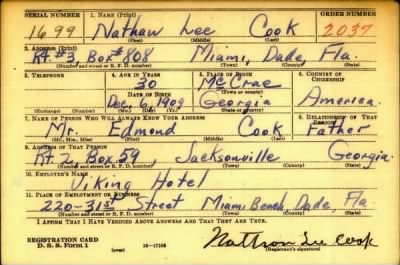 SERIAL NUMBER 1. NAME (Print) ORDER NUMBER
1699 Nathan Lee Cook 2037
(First) (Middle) (Last)
2. ADDRESS (Print)
Rt. #3, Box #808 Miami, Dade, Fla.
(Number and street or R. F. D. number) (Town) (County) (State)
3. TELEPHONE 4. AGE IN YEARS 5. PLACE OF BIRTH 6. COUNTRY OF CITIZENSHIP
30 McCrae
DATE OF BIRTH (Town or county)
Dec. 6, 1909 Georgia America.
(Exchange) (Number) (Mo.) (Day) (Yr.) (State or country)
7. NAME OF PERSON WHO WILL ALWAYS KNOW YOUR ADDRESS 8. RELATIONSHIP OF THAT PERSON
Mr. Edmond Cook Father
(Mr., Mrs., Miss) (First) (Middle) (Last)
9. ADDRESS OF THAT PERSON
Rt. 2, Box 39, Jacksonville Georgia.
(Number and street or R. F. D. number) (Town) (County) (State)
10. EMPLOYER'S NAME
Viking Hotel
11. PLACE OF EMPLOYMENT OR BUSINESS
220-31st Street Miami Beach, Dade, Fla.
(Number and street or R. F. D. number) (Town) (County) (State)
I AFFIRM THAT I HAVE VERIFIED ABOVE ANSWERS AND THAT THEY ARE TRUE.
REGISTRATION CARD
D. S. S. Form 1 (over) 16-17105 Nathan Lee Cook
(Registrant's signature)